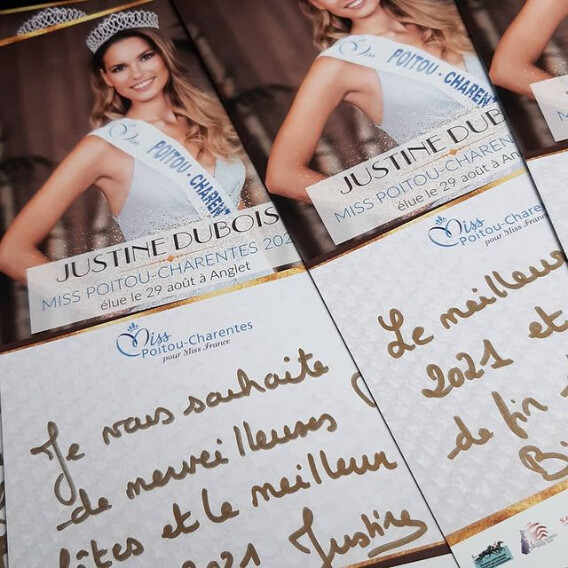 Miss
POITOU - CHAREN
JUSTINE DUBOIS
MISS POITOU-CHARENTES 202
élue le 29 août à Anglet
Miss
Poitou-Charentes
pour Miss France
Je vous souhaite
de merveilleuses
fêtes et le meilleur
2021 Justine
Miss
POITOU - CHARENT
JUSTINE DUBO
MISS POITOU-CHAREN
élue le 29 août à Ang
Miss
Poitou-Charen
pour Miss France
Le meilleur
2021 et
de fin
Bi
J
MIS